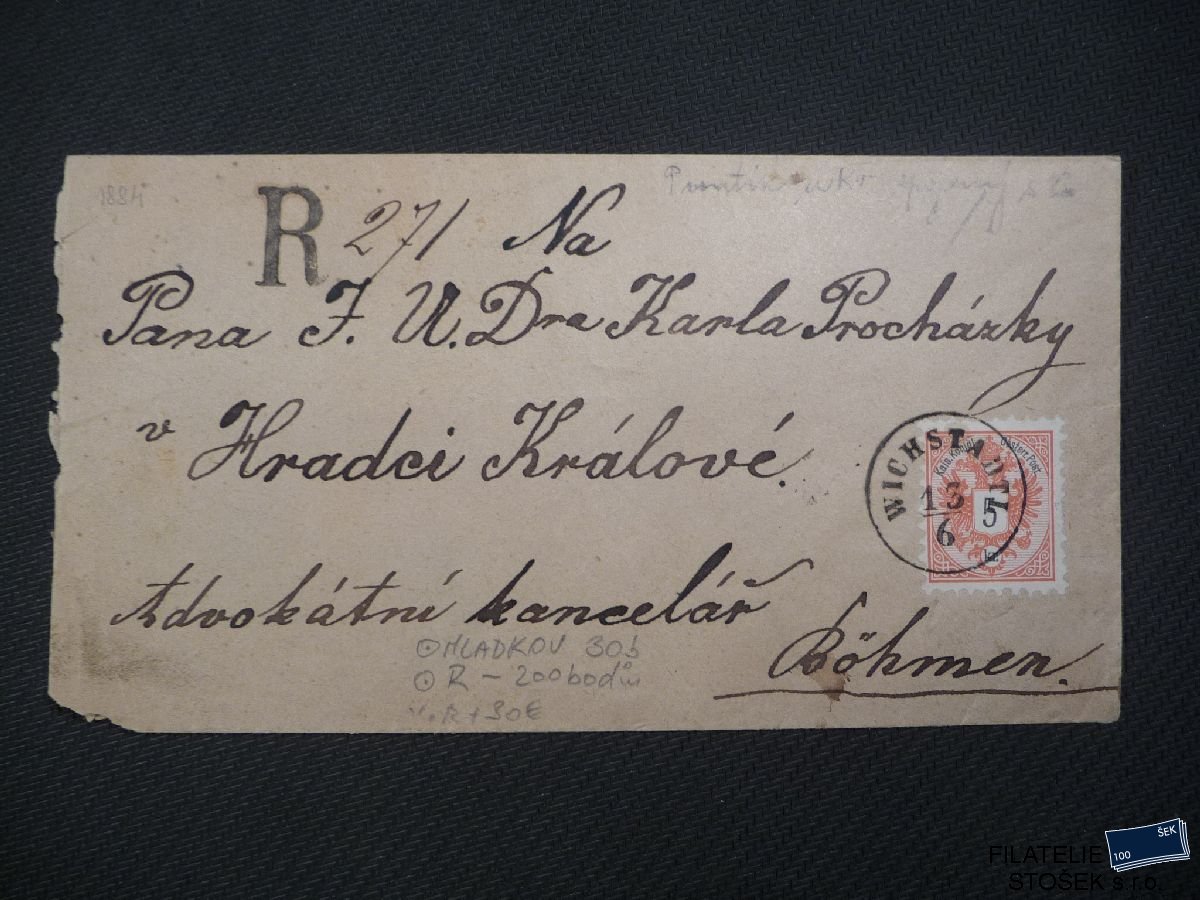 1884
R 271 Na
Pana J. U. Dra Karla Procházky
v Hradci Králové.
WICHSTADTL
13
6
Kais. Königl. Oesterr. Post.
5
kr.
Advokátní kancelář
MLADKOV 30b
R - 200 bodů
R + 30€
Böhmen.
ŠEK
100
FILATELIE
STOŠEK s.r.o.